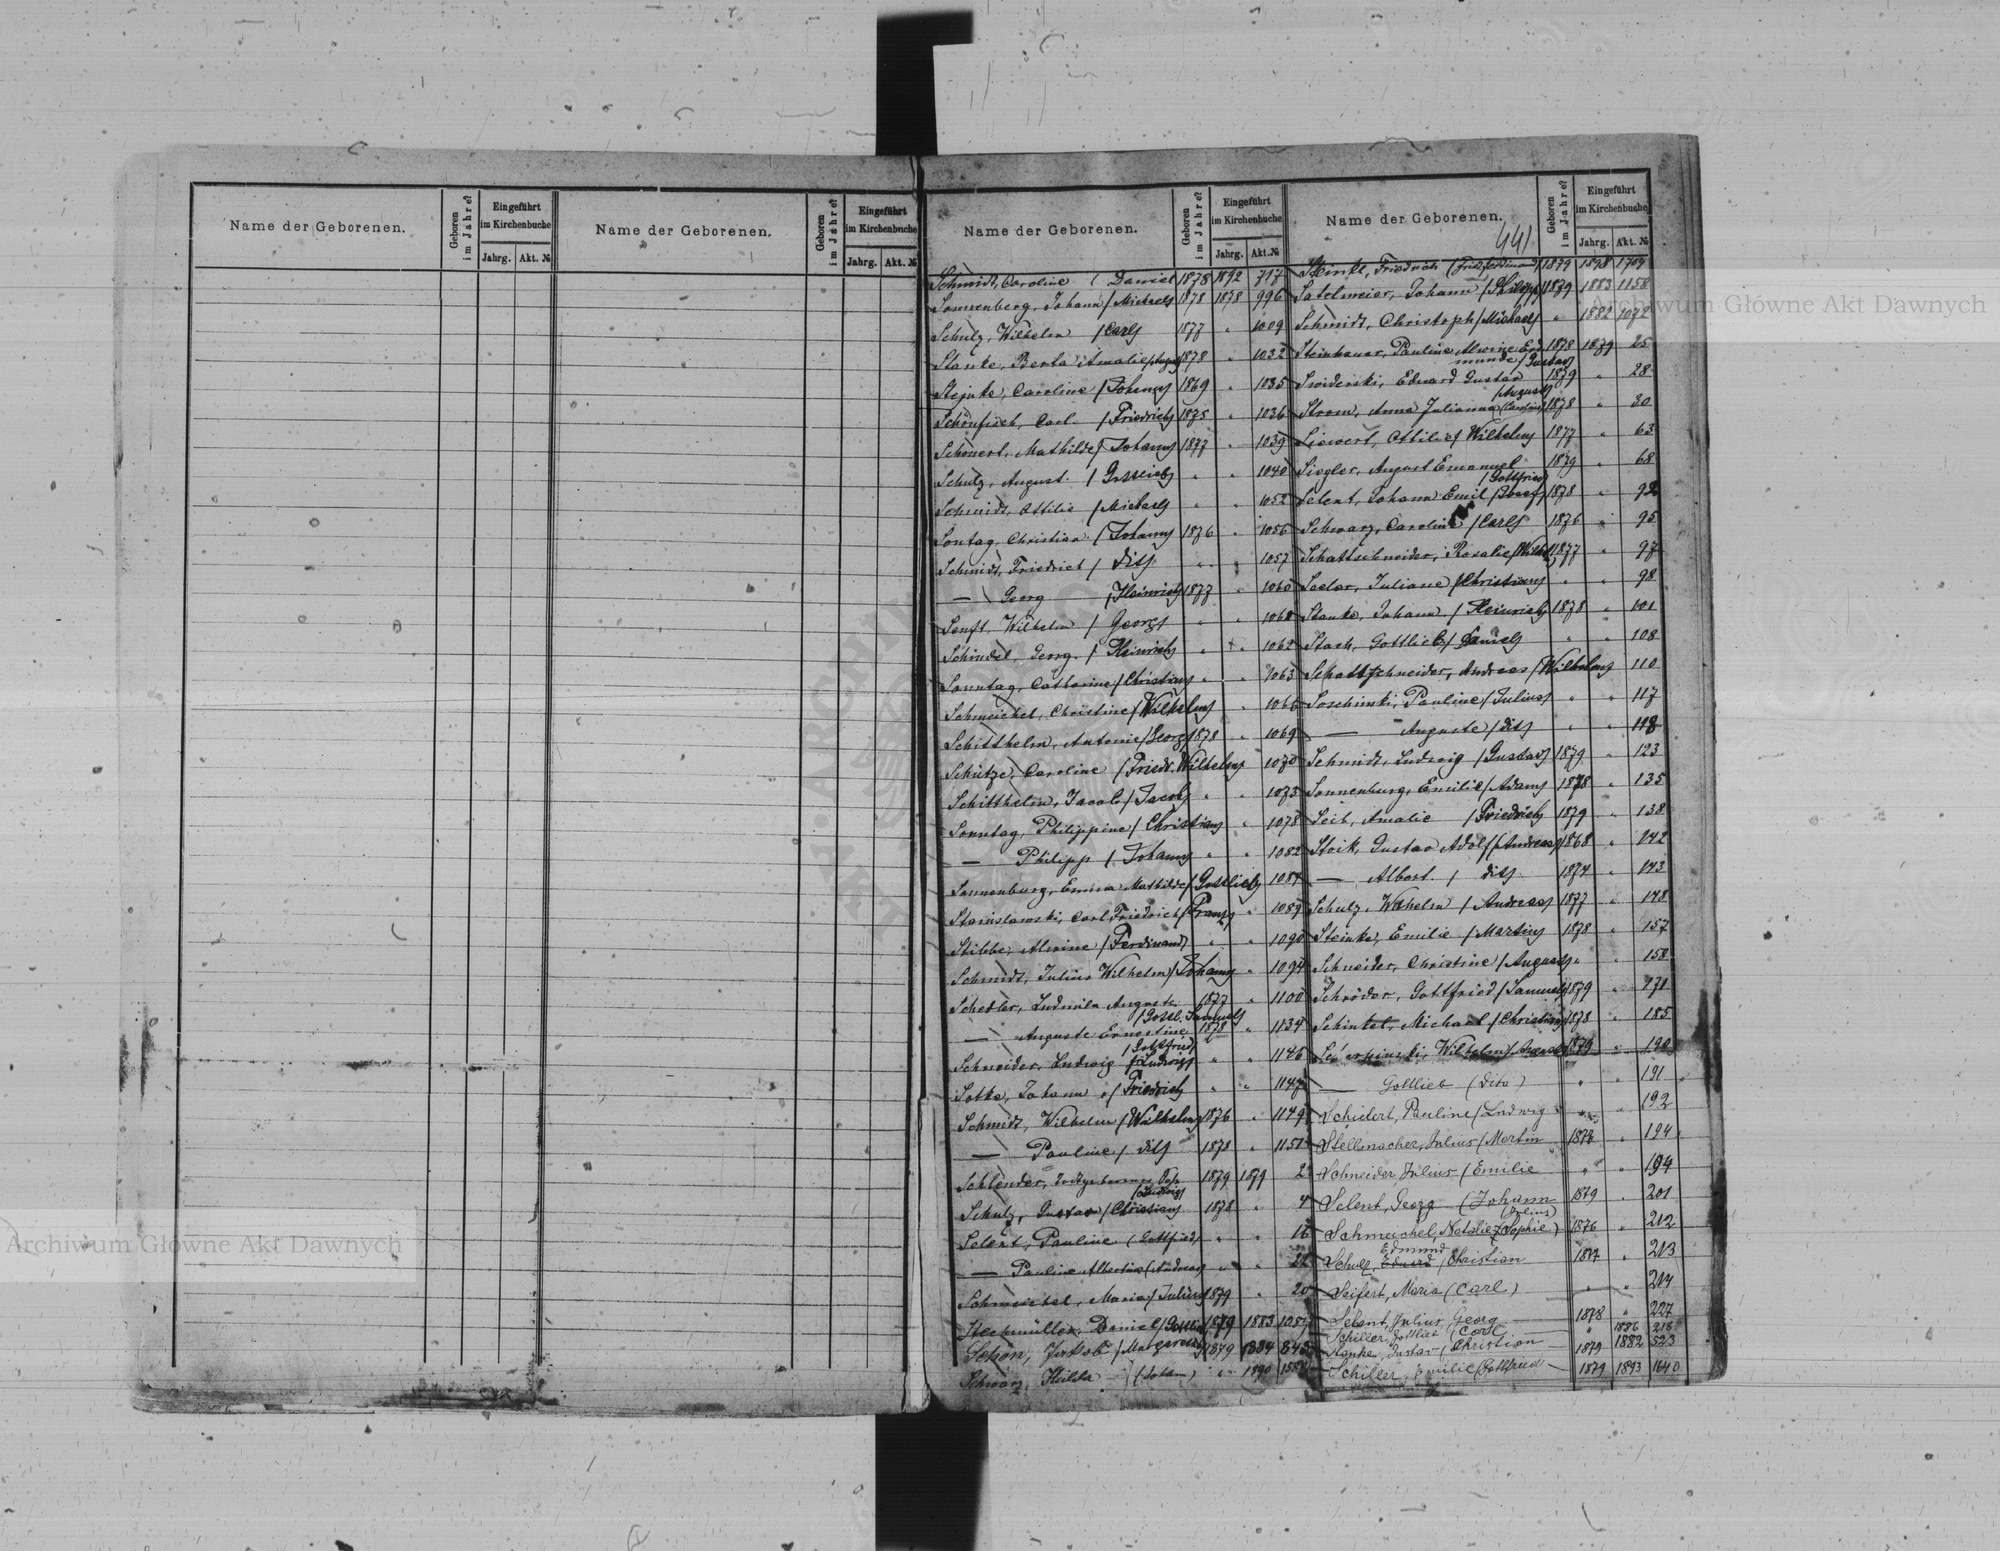 Name der Geborenen.
Geboren im Jahre?
Eingeführt im Kirchenbuche
Jahrg. Akt. №
Name der Geborenen.
Geboren im Jahre?
Eingeführt im Kirchenbuche
Jahrg. Akt. №
Name der Geborenen.
Geboren im Jahre?
Eingeführt im Kirchenbuche
Jahrg. Akt. №
Schmidt, Caroline (Daniel 1878 1892 717
Sonnenberg, Johann (Michael) 1878 1878 996
Schulz, Wilhelm (Carl) 1877 " 1009
Stanke, Berta Amalie (August) 1878 " 1032
Stejnke, Caroline (Johann) 1869 " 1035
Schönfisch, Carl (Friedrich) 1875 " 1036
Schönert, Mathilde (Johann) 1877 " 1039
Schulz, August (Gottlieb) " " 1040
Schmidt, Ottilie (Michael) " " 1052
Sontag, Christian (Johann) 1876 " 1056
Schmidt, Friedrich (dito) " " 1057
— Georg (Heinrich) 1877 " 1060
Senft, Wilhelm (Georg) " "
Schindel, Georg (Heinrich) " " 1062
Sonntag, Catharine (Christian) " " 1063
Schmeichel, Christine (Wilhelm) " 1066
Schitthelm, Antonie (Georg) 1878 " 1069
Schütze, Caroline (Friedr. Wilhelm) 1070
Schitthelm, Jacob (Jacob) " " 1073
Sonntag, Philippine (Christian) " 1078
— Philipp (Johann) " " 1082
Sonnenburg, Emma Mathilde (Gottlieb) 1084
Stanislawski, Carl Friedrich (Franz) " 1089
Stibbe, Alwine (Ferdinand) " " 1090
Schmidt, Julius Wilhelm (Johann) " 1094
Schedler, Ludmila Auguste 1877 " 1100
(Gottl. Samuel)
— Auguste Ernestine 1878 " 1134
(Gottfried)
Schneider, Ludwig (Ludwig) " " 1146
Sotke, Johann (Friedrich) " " 1147
Schmidt, Wilhelm (Wilhelm) 1876 " 1149
— Pauline (dito) 1878 " 1151
Schlender, 1879 1879 2
(Ludwig)
Schulz, Gustav (Christian) 1878 " 4
Selent, Pauline (Gottfried) " " 16
— Pauline Albertine (Andreas) " " 22
Schmeichel, Maria (Julius) 1879 " 20
Steckmüller, Daniel (Gottlieb) 1879 1883
Schön, Jakob (Margarethe) 1879 1884 845
Schwarz, Hulda (Johann) " 1890
Name der Geborenen.
441
Geboren im Jahre?
Eingeführt im Kirchenbuche
Jahrg. Akt. №
Steinke, Friedrich (Friedr. Ferdinand) 1879 1898 1709
Satelmeier, Johann (Philipp) 1879 1883 1158
Schmidt, Christoph (Michael) " 1882 1072
Steinhauer, Pauline Alwine Ero- 1878 1879 25
munde (Gustav)
Swiderski, Eduard Gustav 1879 " 28
(August)
Strom, Anna Julianna (Caroline) 1878 " 30
Siewert, Ottilie (Wilhelm) 1877 " 63
Siegler, August Emanuel 1879 " 68
(Gottfried)
Selent, Johann Emil (Josef) 1878 " 92
Schwarz, Caroline (Carl) 1876 " 95
Schattschneider, Rosalie (Wilhelm) 1877 " 97
Seeler, Juliane (Christian) " " 98
Stanke, Johann (Heinrich) 1878 " 101
Stach, Gottlieb (Daniel) " " 108
Schattschneider, Andreas (Wilhelm) 110
Soschinski, Pauline (Julius) " " 117
— Auguste (dito) " " 118
Schmidt, Ludwig (Gustav) 1879 " 123
Sonnenburg, Emilie (Adam) 1878 " 135
Seib, Amalie (Friedrich) 1879 " 138
Stoik, Gustav Adolf (Andreas) 1868 " 142
— Albert (dito) 1874 " 143
Schulz, Wilhelm (Andreas) 1877 " 148
Steinke, Emilie (Martin) 1878 " 157
Schneider, Christine (August) " " 158
Schröder, Gottfried (Samuel) 1879 " 171
Schinkel, Michael (Christian) 1878 " 185
Wilhelm (August) 1879 " 190
— Gottlieb (dito) " " 191
Schielert, Pauline (Ludwig " " 192
Stellmacher, Julius (Martin 1878 " 194
Schneider, Julius (Emilie " " 194
Selent, Georg (Johann 1879 " 201
(Julius)
Schmeichel, Natalie (Sophie) 1876 " 212
Edmund
Schulz, Eduard (Christian 1877 " 213
Seifert, Maria (Carl) " " 214
Selent, Julius Georg 1878 " 227
Schiller, Gottlieb (Carl " 1886 218
Stanke, Gustav (Christian 1879 1882 523
Schiller, Emilie (Gottfried 1879 1893 1640
Archiwum Główne Akt Dawnych
Archiwum Główne Akt Dawnych